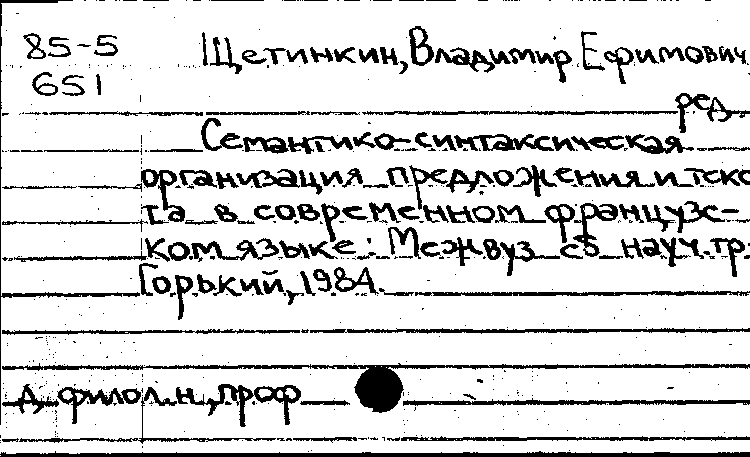 85-5
651
Щетинкин, Владимир Ефимович,
ред.
Семантико-синтаксическая
организация предложения и текс
та в современном французс-
ком языке: Межвуз сб науч. тр.
Горький, 1984.
д. филол. н., проф